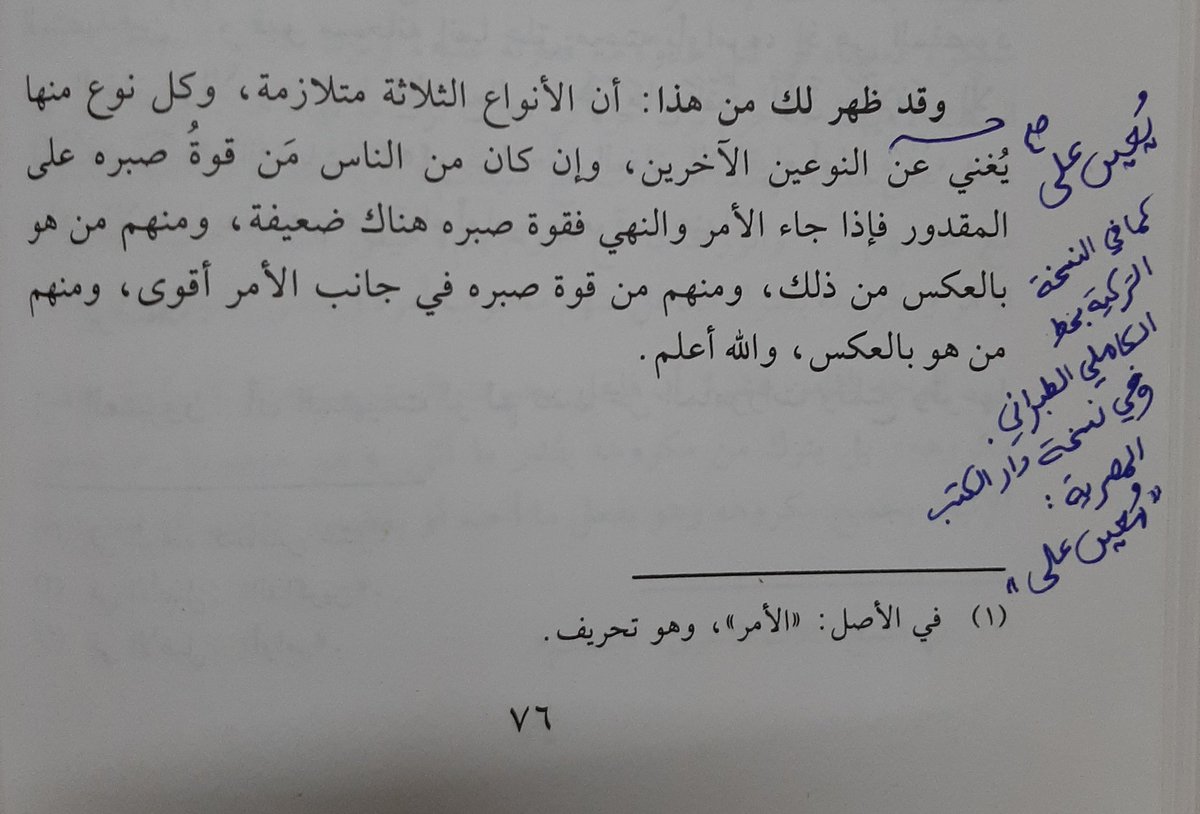 وقد ظهر لك من هذا: أن الأنواع الثلاثة متلازمة، وكل نوع منها
يُغني عن النوعين الآخرين، وإن كان من الناس مَن قوةُ صبره على
المقدور فإذا جاء الأمر والنهي فقوة صبره هناك ضعيفة، ومنهم من هو
بالعكس من ذلك، ومنهم من قوة صبره في جانب الأمر أقوى، ومنهم
من هو بالعكس، والله أعلم.
يُعين على
صح
كما في النسخة
التركية بخط
الكاملي الطبراني.
وفي نسخة دار الكتب
المصرية:
"يُعين على"
(١) في الأصل: «الأمر»، وهو تحريف.
٧٦